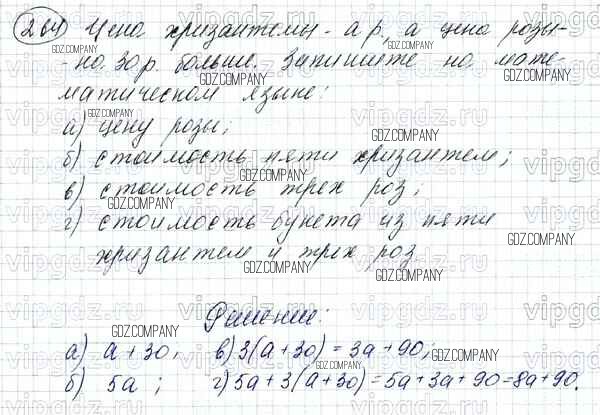 264) Цена хризантемы - а р., а цена розы -
- на 30 р. больше. Запишите на мате-
матическом языке:
а) цену розы;
б) стоимость пяти хризантем;
в) стоимость трех роз;
г) стоимость букета из пяти
хризантем и трех роз
Решение:
а) a + 30, в) 3(a + 30) = 3a + 90,
б) 5a ; г) 5a + 3(a + 30) = 5a + 3a + 90 = 8a + 90.
GDZ.COMPANY
vipgdz.ru